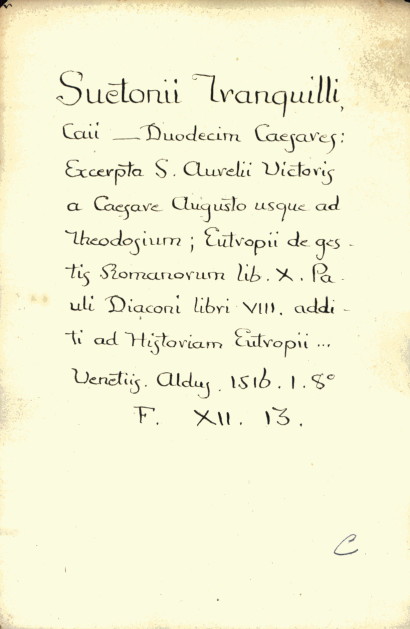 Suetonii Tranquilli,
Caii — Duodecim Caesares:
Excerpta S. Aurelii Victoris
a Caesare Augusto usque ad
Theodosium; Eutropii de ges-
tis Romanorum lib. X. Pa-
uli Diaconi libri VIII. addi-
ti ad Historiam Eutropii...
Venetiis. Aldus. 1516. 1. 8°
F. XII. 13.
C